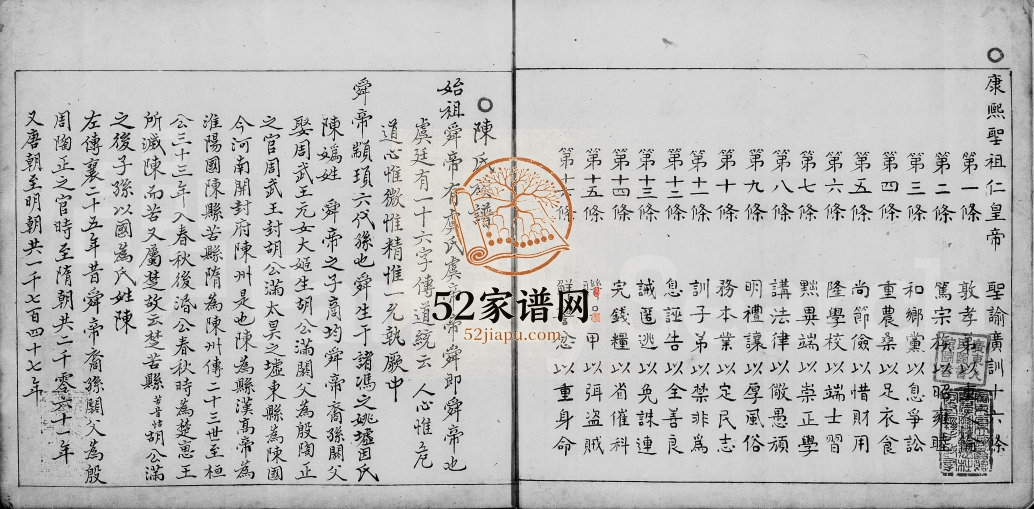 康熙聖祖仁皇帝 聖諭廣訓十六條
第一條 敦孝弟以重人倫
第二條 篤宗族以昭雍睦
第三條 和鄉黨以息爭訟
第四條 重農桑以足衣食
第五條 尚節儉以惜財用
第六條 隆學校以端士習
第七條 黜異端以崇正學
第八條 講法律以儆愚頑
第九條 明禮讓以厚風俗
第十條 務本業以定民志
第十一條 訓子弟以禁非為
第十二條 息誣告以全善良
第十三條 誡匿逃以免誅連
第十四條 完錢糧以省催科
第十五條 聯保甲以弭盜賊
第十 條 忿以重身命
陳氏 譜
始祖舜帝有虞氏虞 帝舜即舜帝也
虞廷有一十六字傳道統云 人心惟危
道心惟微惟精惟一允執厥中
舜帝顓頊六代孫也舜生于諸馮之姚墟因氏
陳媯姓 舜帝之子商均舜帝裔孫關父
娶周武王元女大姬生胡公滿關父為殷陶正
之官周武王封胡公滿太昊之墟東縣為陳國
今河南開封府陳州是也陳為縣漢高帝為
淮陽國陳縣苦縣隋為陳州傳二十三世至桓
公三十三年入春秋後湣公春秋時為楚惠王
所滅陳而苦又屬楚故云楚苦縣 苦音怙 胡公滿
之後子孫以國為氏姓陳
左傳襄二十五年昔舜帝裔孫關父為殷
周陶正之官時至隋朝共二千零六十一年
又唐朝至明朝共一千七百四十七年
52家谱网
52jiapu.com